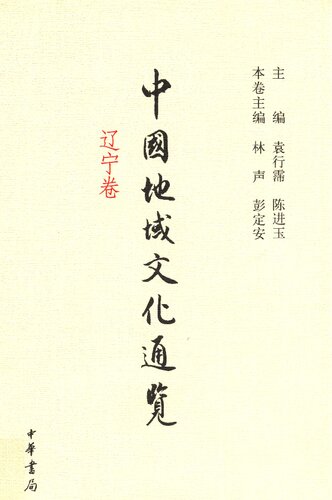 主编 袁行霈 陈进玉
本卷主编 林声 彭定安
中國地域文化通覽
辽宁卷
中華書局